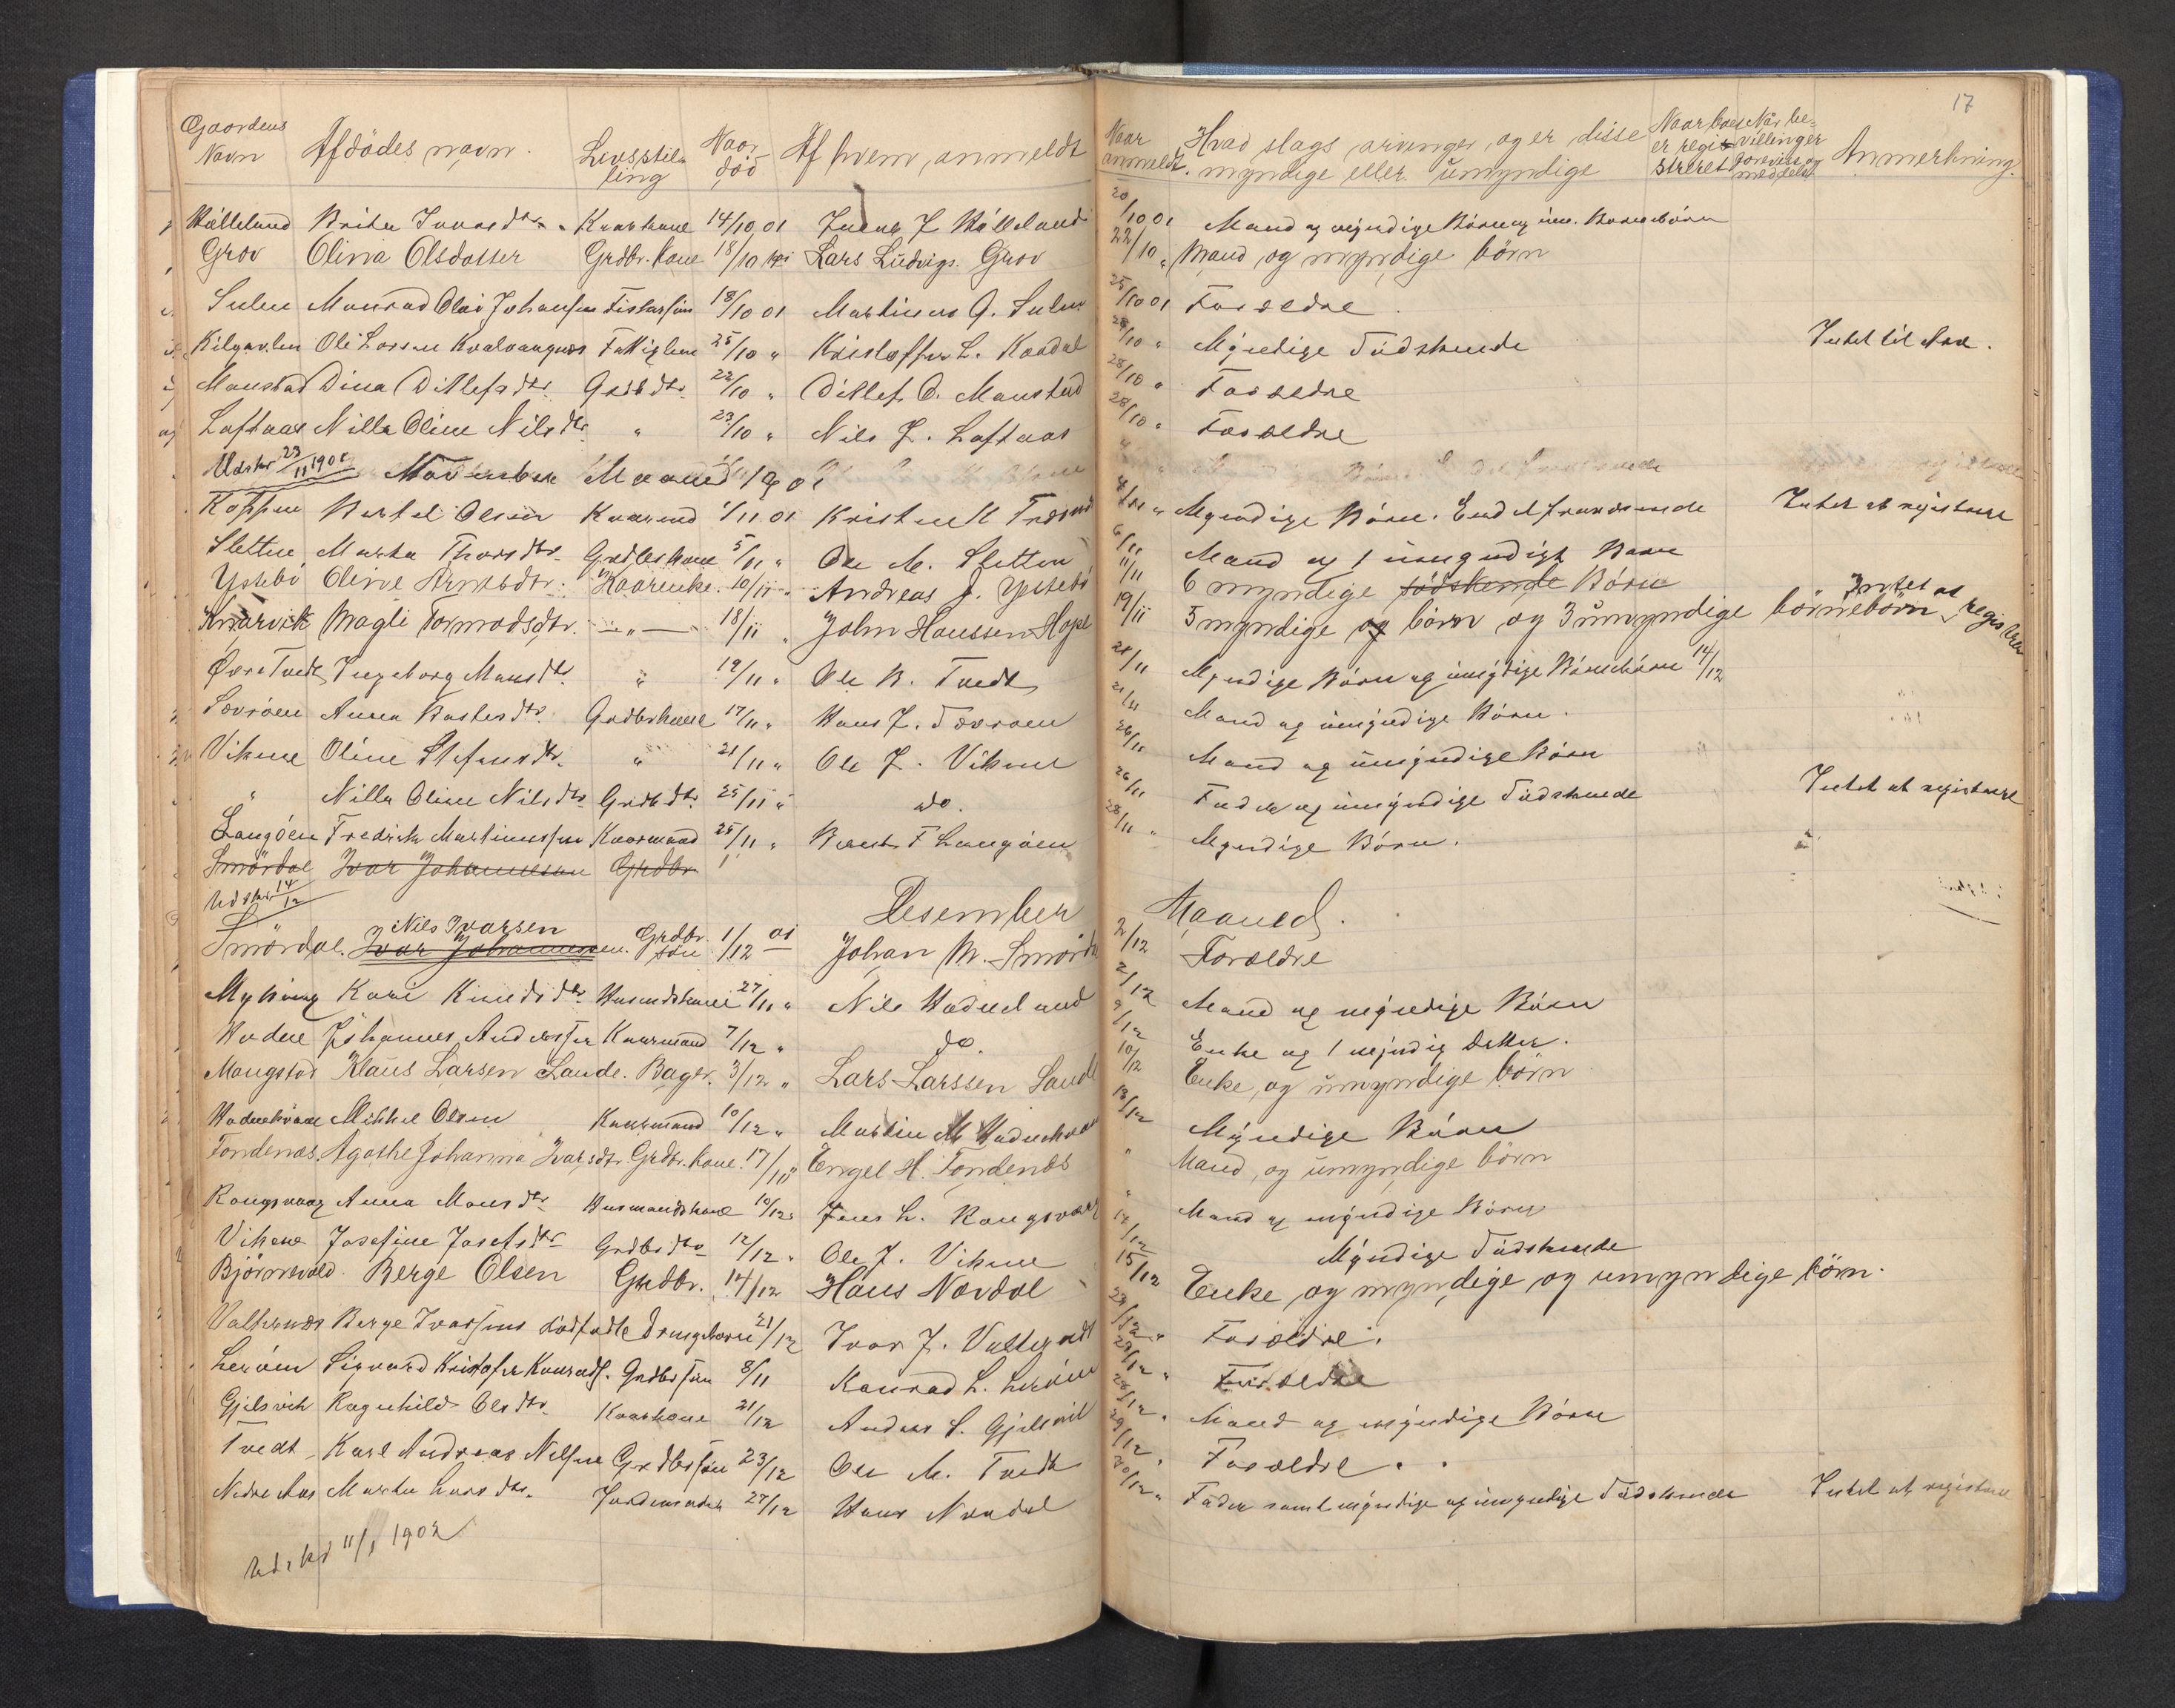 17
Gaardens Navn Afdödes navn. Livsstilling Naar död Af hvem anmeldt Naar anmeldt. Hvad slags arvinger, og er disse myndige eller umyndige Naar boet er registreret Når bevillinger meddelt Anmerkning.
Hölleland Brita Ivarsdtr. Kaarkone 14/10 01 J. Hölleland 20/10 01 Mand og myndige Börn og um. Barnebörn
Grov Olina Olsdatter Grdbr. kone 18/10 Lars Ludvigs. Grov 22/10 " Mand og myndige börn
Sulen Monrad Olai Johansen Fiskersön 18/10 01 Martinus A. Sulen 25/10 01 Forældre
Kilgavlen Ole Larsen Kvalvaagnes Fattiglem 25/10 " Kristoffer L. 28/10 " Myndige Södskende Intet til Arv.
Monstad Dina Ditlefsdtr. Grdbdtr. 22/10 " Ditlef O. Monstad 28/10 " Forældre
Loftaas Nilla Oline Nilsdtr. " 23/10 " Nils J. Loftaas 28/10 " Forældre
Udskr 23/11 1901 November Maaned 1901
Koppen Bertel Olsen Kaarmd 1/11 01 Kristen K 4/11 " Myndige Börn. Endel fraværende Intet at registrere
Sletten Marta Thorsdtr. Grdbrs kone 5/11 " Ole M. Sletten 6/11 Mand og 1 umyndigt Barn
Ystebö Oline Arnesdtr. Kaarenke. 10/11 " Andreas J. Ystebö 11/11 6 myndige södskende Börn
Knarvik Magli Tormodsdtr. — " — 18/11 " John Hanssen Hope 19/11 5 myndige og börn og 3 umyndige börnebörn, Intet at registrere
Övre Tvedt Ingeborg Monsdtr. " 19/11 " Ole B. Tvedt 21/11 Myndige Börn og umyndige Börnebörn 14/12
Sævröen Anna Grdbrskone 17/11 " Hans J. Sævröen 21/11 Mand og umyndige Börn.
Vikene Oline Stefensdtr. " 21/11 " Ole J. Vikene 26/11 Mand og umyndige Börn
" Nilla Oline Nilsdtr. Grdbdtr. 25/11 " do. 26/11 Fader og umyndige Södskende Intet at registrere
Langöen Fredrik Martinussen Kaarmand 25/11 " Bernt F Langöen 28/11 " Myndige Börn.
Smördal Ivar Johannesen Grdbr
Udskr. 14/12 Desember Maaned.
Smördal. Ivar Johannessen. Nils Ivarsen Grdbr. sön 1/12 01 Johan M. Smördal 2/12 Forældre
Myking Kari Knudsdtr. Husmdskone 27/11 " Nils Hodneland 2/12 Mand og myndige Börn
Hodne Johannes Anderssen Kaarmand 7/12 " do. 9/12 Enke og 1 myndig Datter.
Mongstad Klaus Larsen Sande. Bager. 3/12 " Lars Larssen Sande 10/12 Enke, og umyndige börn
Mikkel Olsen Kaarmand 10/12 " Martin M. 13/12 Myndige Börn
Fondenæs. Agathe Johanna Ivarsdtr. Grdbr. kone. 17/11 " Engel H. Fondenæs " Mand, og umyndige börn
Rongevaag Anna Monsdtr. Husmandskone 10/12 " Jens L. Rongevaag " Mand og myndige Börn
Vikene Josefine Josefsdtr. Grdbrsdtr. 12/12 " Ole J. Vikene 14/12 Myndige Södskende
Björnevold. Berge Olsen Grdbr. 14/12 Hans Nordal 15/12 Enke og myndige og umyndige börn.
Berge Ivarsens dödfödte drengebarn 21/12 Ivar J. 23/12 " Forældre.
Leröen Sigvard Kristofer Konradsen. Grdbrs sön 8/11 Konrad L. Leröen 27/12 " Forældre
Gjelsvik Ragnhild Olsdtr. Kaarkone 21/12 Anders S. Gjelsvik 28/12 " Mand og myndige Börn
Tvedt Karl Andreas Nilsen Grdbrs sön 23/12 Ole M. Tvedt 29/12 " Forældre.
Nedre Aas Marta Larsdtr. Jordemoder 27/12 Hans Nordal 30/12 " Fader samt myndige og umyndige Södskende Intet at registrere
Udskr 11/1 1902